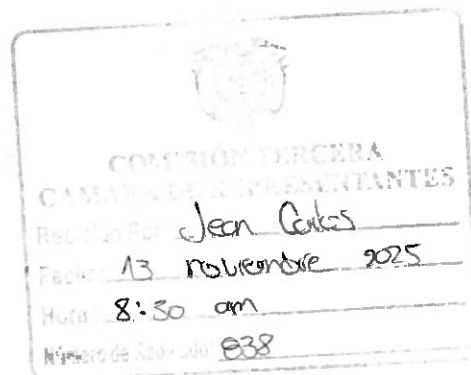 COMISIÓN TERCERA
CAMARA DE REPRESENTANTES
Recibido Por: Jean Carlos
Fecha: 13 noviembre 2025
Hora: 8:30 am
Número de Radicado: 838